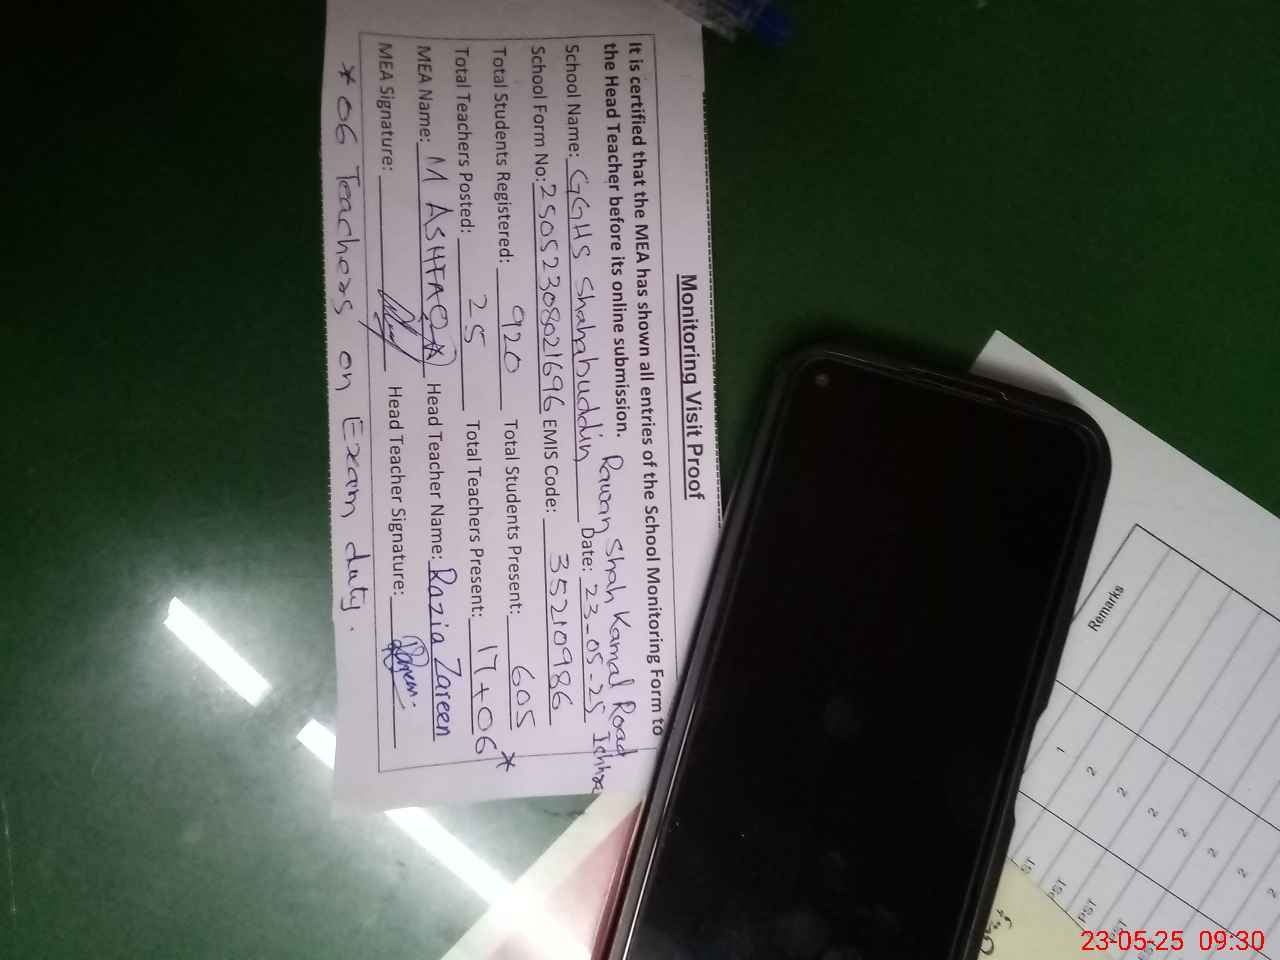 Monitoring Visit Proof
It is certified that the MEA has shown all entries of the School Monitoring Form to
the Head Teacher before its online submission. Rawan Shah Kamal Road
Ichhra
School Name: GGHS Shahabuddin Date: 23-05-25
School Form No: 25052308021696 EMIS Code: 35210986
Total Students Registered: 920 Total Students Present: 605
Total Teachers Posted: 25 Total Teachers Present: 17+06*
MEA Name: M ASHFAQ Head Teacher Name: Razia Zareen
MEA Signature: Head Teacher Signature:
* 06 Teachers on Exam duty.
Remarks
1
2
2
2
2
2
2
2
ST
PST
PST
23-05-25 09:30